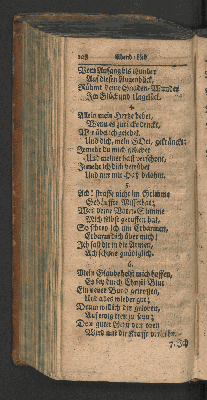 208 Abend-Lied
Vom Anfang bis hieunter
Auf diesen Augenblick,
Rühmt deine Gnaden-Wunder
Im Glück und Unglück.
4.
Allein mein Hertze bebet,
Wenn es zurücke dencket,
Wie übel ich gelebet,
Und dich, mein GOtt, gekräncket:
Je mehr du mich geliebet
Und meiner hast verschonet,
Je mehr ich dich betrübet
Und nur mit Haß belohnt.
5.
Ach! straffe nicht im Grimme
Gehäuffte Missethat;
Wer deine Vater-Stimme
Mich selbst geruffen hat,
So schrey ich um Erbarmen,
Erbarm dich über mich!
Ich fall dir in die Armen,
Ach schone gnädiglich.
6.
Mein Glaube heißt mich hoffen,
Es sey durch Christi Blut
Ein neuer Bund getroffen,
Und alles wieder gut;
Drum will ich dir geloben,
Auf ewig treu zu seyn;
Dein guter Geist von oben
Wird mir die Krafft verleihn.
7. Ich